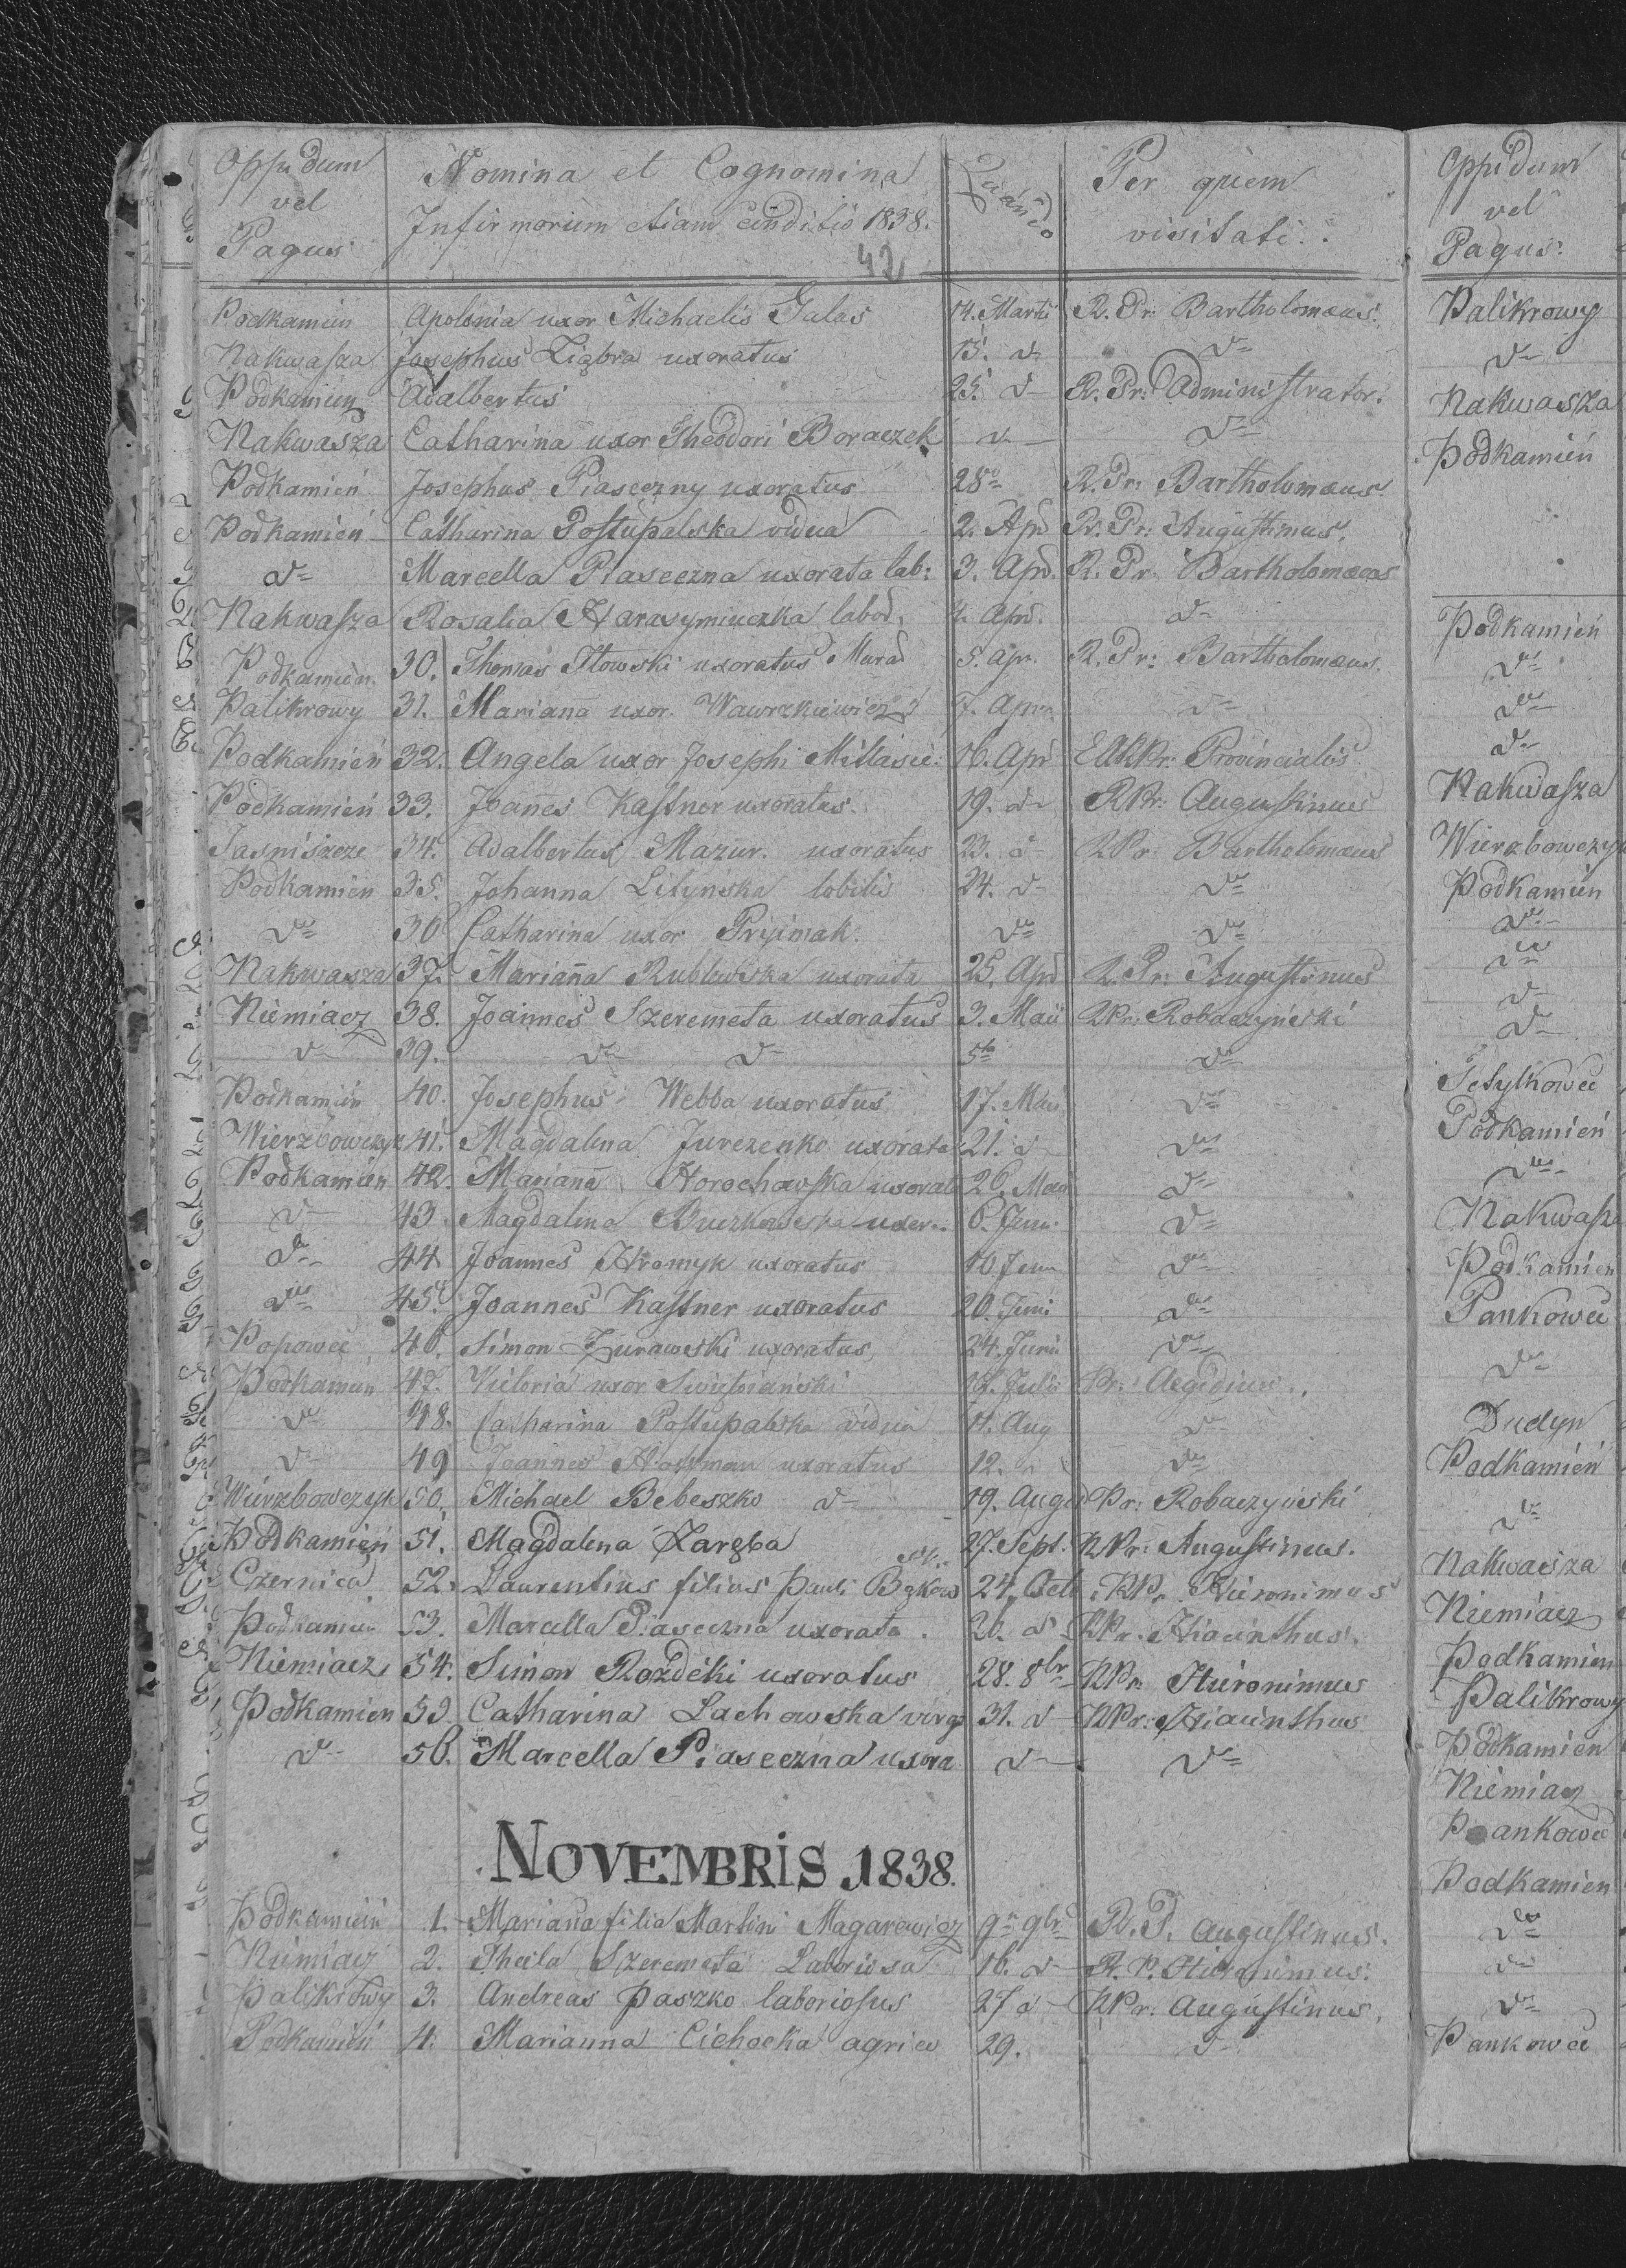 Oppidum vel Pagus
Nomina et Cognomina Infirmorum etiam Conditio 1838.
Per quem visitati.
42
Podkamien Apolonia uxor Michaelis Galas 14. Martii R. Pr: Bartholomæus.
Nakwasza Josephus Ziąbra uxoratus 15. d- d-
Podkamien Adalbertus 25. d- R. Pr: Administrator.
Nakwasza Catharina uxor Theodori Boraczek d- d-
Podkamień Josephus Piaseczny uxoratus 28 R. Pr: Bartholomæus
Podkamień Catharina Postupalska vidua 2. Apr R. Pr: Augustinus.
d- Marcella Piaseczna uxorata lab: 3. Apr. R. Pr: Bartholomæus
Nakwasza Rosalia Harasymiuczka labor. 4. Apr. d-
Podkamien. 30. Thomas Iłowski uxoratus Murar 5. Apr. R. Pr: Bartholomæus.
Palikrowy 31. Mariana uxor Wawrzkiewicz 7. Apr. d-
Podkamień 32. Angela uxor Josephi 16. Apr Provincialis
Podkamień 33. Joanes Kastner uxoratus. 19. d- RPr: Augustinus
34. Adalbertus Mazur. uxoratus 23. d- RPr: Bartholomæus
Podkamien 35. Johanna Litynska 24. d- d-
d- 36 Catharina uxor Pryimak. d- d-
Nakwasza 37. Mariana Rublowska uxorata 25. Apr R. Pr: Augustinus
Niemiacz 38. Joannes Szeremeta uxoratus 3. Maii RPr: Robaczyński
d- 39. d- d- 5 d-
Podkamień 40. Josephus Webba uxoratus 17. Maii d-
Wierzbowczyk 41. Magdalena Jurczenko uxorata 21. d- d-
Podkamien 42. Mariana Horochowska uxorat 26. Maii d-
d- 43. Magdalena uxor. 6. Juni d-
d- 44 Joannes Hromyk uxoratus 10 Juni d-
d- 45. Joannes Kastner uxoratus 20. Juni d-
Popowce 46. Simon Żurawski uxoratus 24. Junii d-
Podkamien 47. Victoria uxor Julii Pr: Aegidius.
d- 48. Catharina Postupalska vidua 11. Aug d-
d- 49 Joannes Hoffman uxoratus 12. d-
Wierzbowczyk 50. Michael Bebeszko d- 19. August Pr: Robaczyński
Podkamień 51. Magdalena Zaręba 27. Sept. RPr: Augustinus.
Czernica 52. Laurentius filius Pauli 24. Octb RPr. Hieronimus
Podkamień 53. Marcella Piaseczna uxorata. 26. d- RPr. Hiacinthus.
Niemiacz 54. Simon Rozdécki uxoratus 28. 8br RPr. Hieronimus
Podkamien 55. Catharina Lachowska virgo 31. d- RPr: Hiacinthus
d- 56. Marcella Piaseczna uxora d- d-
NOVEMBRIS 1838.
Podkamień 1. Mariana filia Martini Magarewicz 9 9br R. P. Augustinus.
Niemiacz 2. Thecla Szeremeta Laboriosa 16. d- R. P. Hieronimus.
Palikrowy 3. Andreas Paszko laboriosus 27 d- RPr: Augustinus.
Podkamień 4. Marianna Cichocka agric 29. d-
Oppidum
vel
Pagus:
Palikrowy
d-
Nakwasza
Podkamień
Podkamień
d-
d-
d-
Nakwasza
Wierzbowczyk
Podkamien
d-
d-
d-
d-
Tetylkowce
Podkamień
d-
Nakwasza
Podkamien
Pankowce
d-
Dudyn
Podkamień
d-
Nakwasza
Niemiacz
Podkamien
Palikrowy
Podkamien
Niemiacz
Pankowce
Podkamien
d-
d-
d-
Pankowce